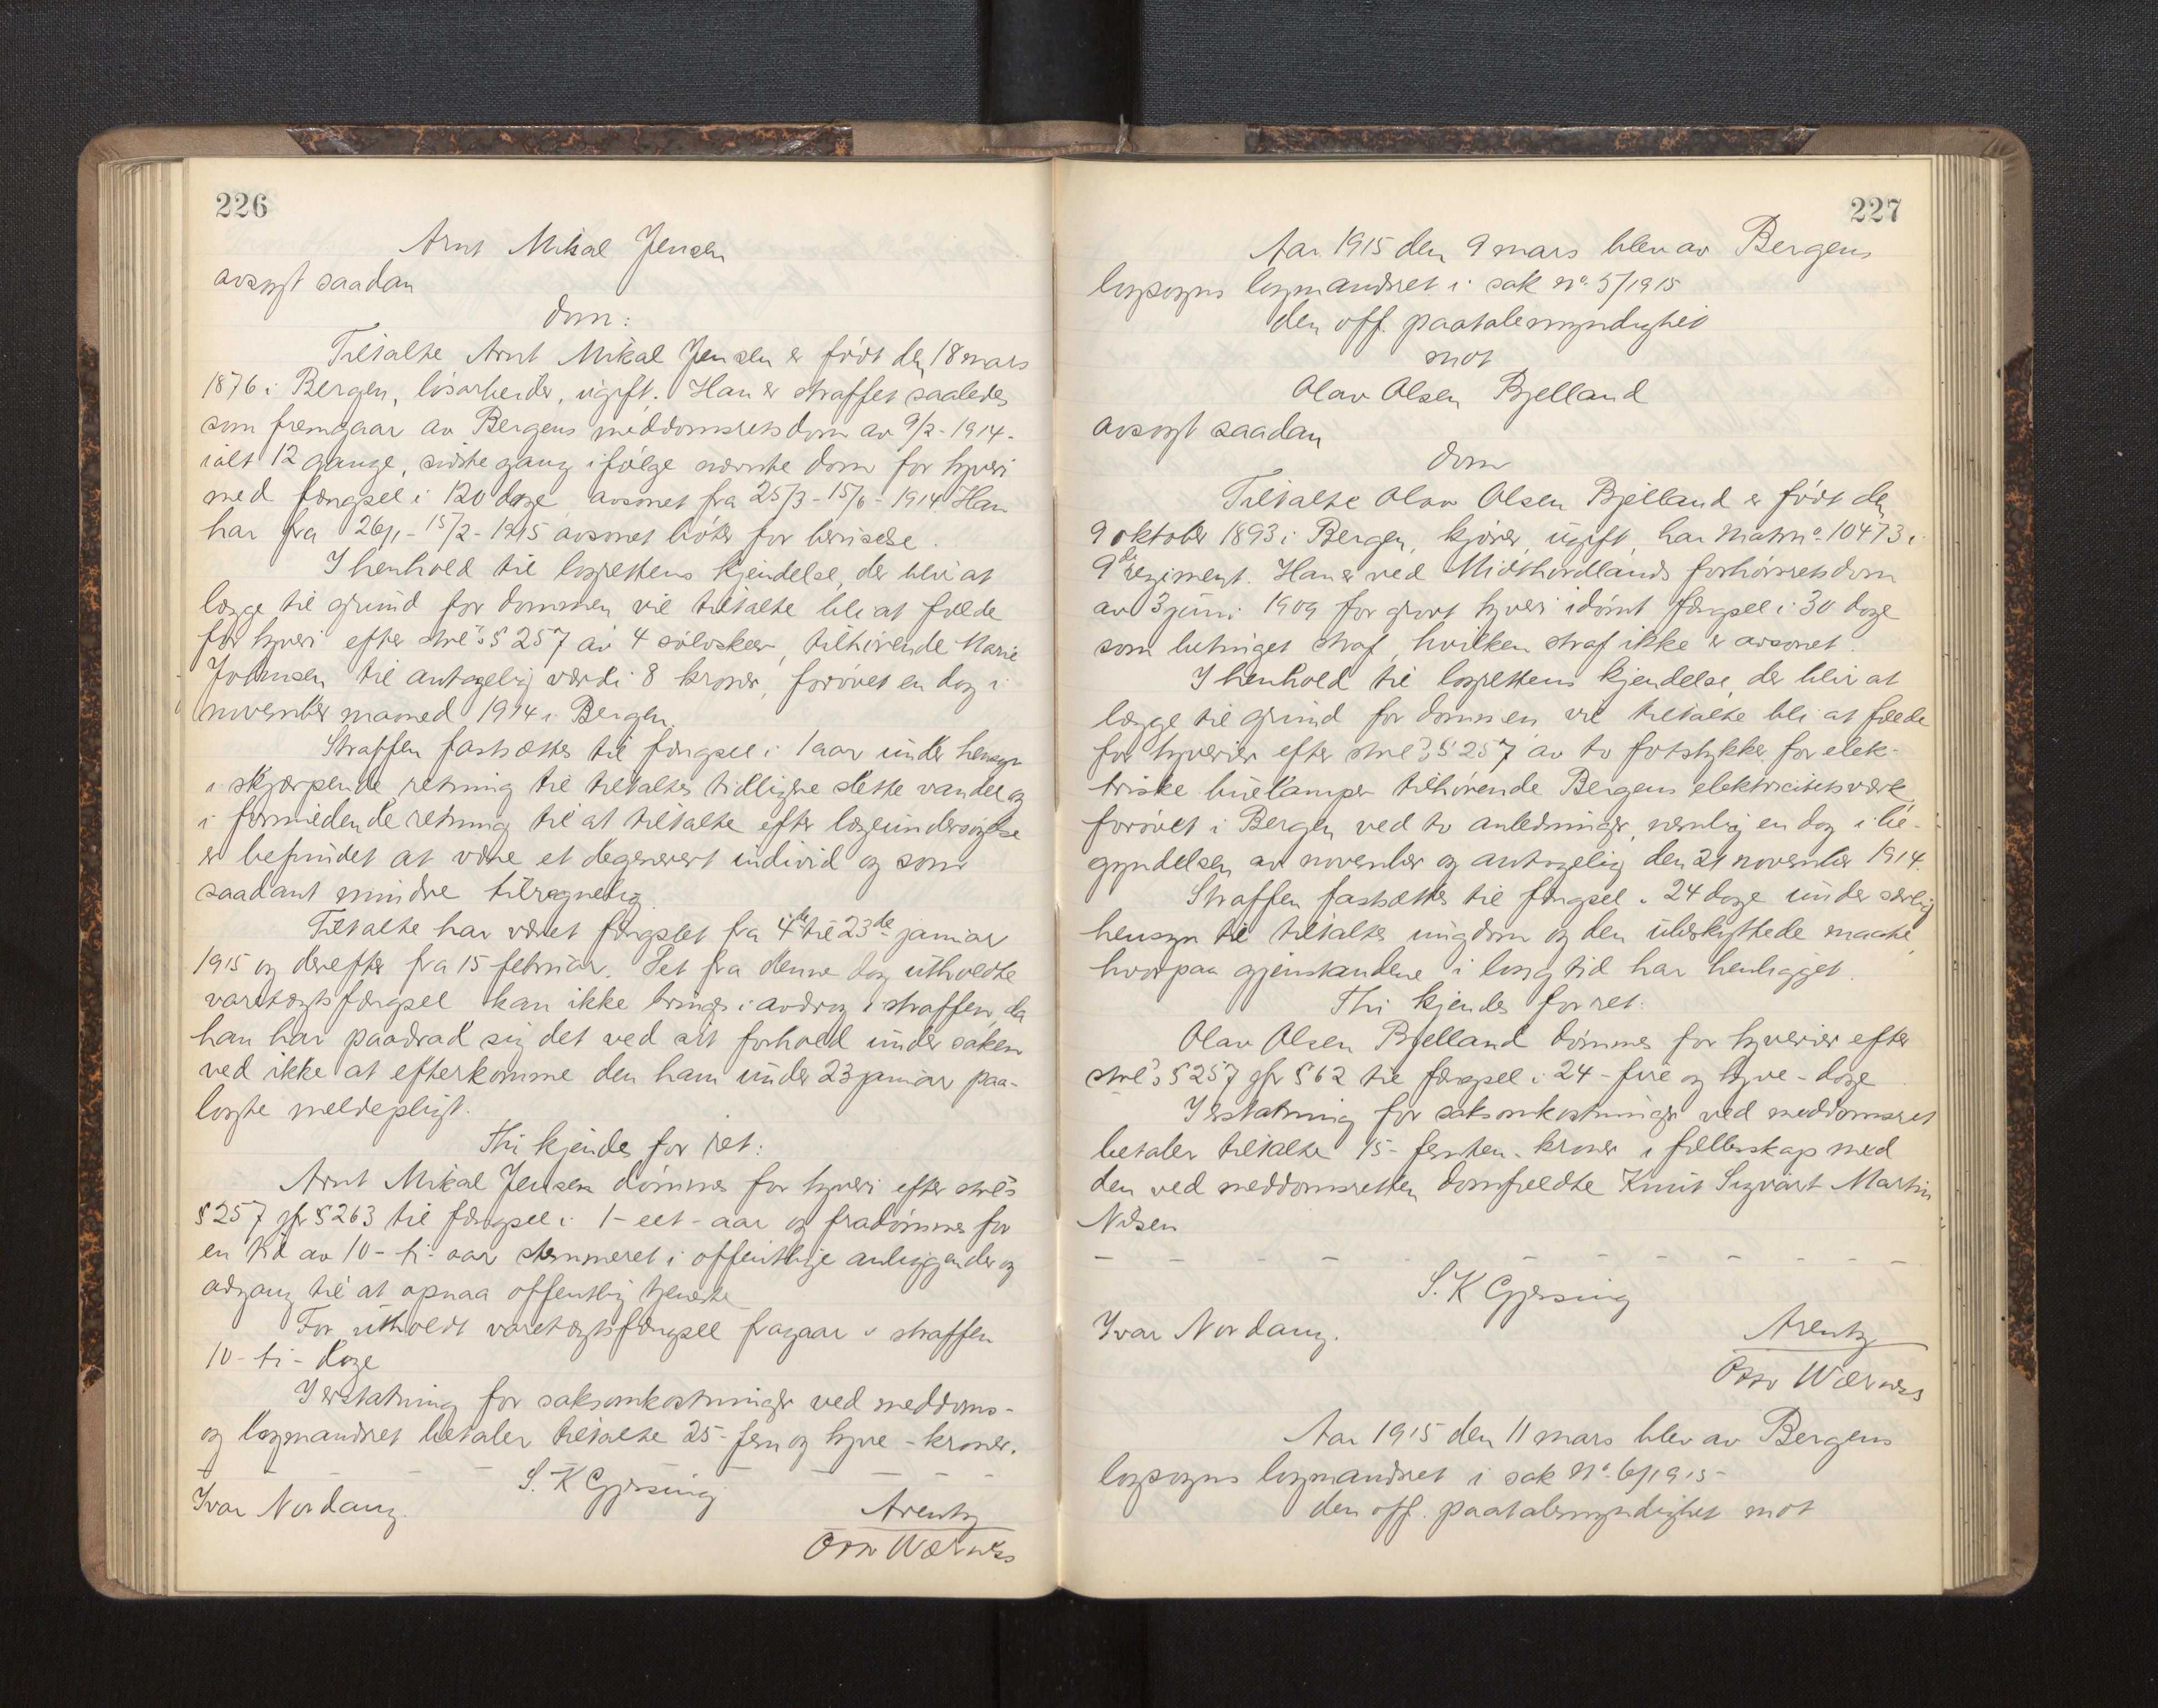 226
Arnt Mikal Jensen
avsagt saadan
dom:
Tiltalte Arnt Mikal Jensen er født den 18 mars
1876 i Bergen, løsarbeider, ugift. Han er straffet saaledes
som fremgaar av Bergens meddomsrets dom av 9/2-1914.
ialt 12 gange, sidste gang ifølge nævnte dom for tyveri
med fængsel i 120 dage avsonet fra 25/3-15/6-1914 Han
har fra 26/1-15/2-1915 avsonet bøter for beruselse.
I henhold til lagrettens kjendelse, der blir at
lægge til grund for dommen vil tiltalte bli at fælde
for tyveri efter strl's § 257 av 4 sølvskeer, tilhørende Marie
Johnsen til antagelig værdi 8 kroner, forøvet en dag i
november maaned 1914 i Bergen.
Straffen fastsættes til fængsel i 1 aar under hensyn
i skjærpende retning til tiltaltes tidligere slette vandel og
i formildende retning til at tiltalte efter lægeundersøgelse
er befundet at være et degenerert individ og som
saadant mindre tilregnelig.
Tiltalte har været fængslet fra 4de til 23de januar
1915 og derefter fra 15 februar. Det fra denne dag utholdte
varetægtsfængsel kan ikke bringes i avdrag i straffen, da
han har paadrad sig det ved sit forhold under saken
ved ikke at efterkomme den ham under 23 januar paa-
lagte meldepligt.
Thi kjendes for ret:
Arnt Mikal Jensen dømmes for tyveri efter strl's
§ 257 jfr § 263 til fængsel i 1-eet-aar og fradømmes for
en tid av 10-ti-aar stemmeret i offentlige anliggender og
adgang til at opnaa offentlig tjeneste
For utholdt varetægtsfængsel fragaar i straffen
10-ti-dage
I erstatning for saksomkostninger ved meddoms-
og lagmandsret betaler tiltalte 25-fem og tyve-kroner.
S. K Gjessing
Ivar Nordang.
Arentz
227
Aar 1915 den 9 mars blev av Bergens
lagsogns lagmandsret i sak No. 5/1915
den off. paatalemyndighet
mot
Olav Olsen Bjelland
avsagt saadan
dom
Tiltalte Olav Olsen Bjelland er født den
9 oktober 1893 i Bergen, kjører, ugift, har Matr No. 10473 i
9de regiment. Han er ved Midthordlands forhørsrets dom
av 3 juni 1909 for grovt tyveri idømt fængsel i 30 dage
som betinget straf, hvilken straf ikke er avsonet.
I henhold til lagrettens kjendelse, der blir at
lægge til grund for dommen vil tiltalte bli at fælde
for tyverier efter strl's § 257 av to fotstykker for elek-
triske buelamper tilhørende Bergens elektricitetsverk,
forøvet i Bergen ved to anledninger, nemlig en dag i be-
gyndelsen av november og antagelig den 21 november 1914.
Straffen fastsættes til fængsel i 24 dage under særlig
hensyn til tiltaltes ungdom og den ubeskyttede maate,
hvorpaa gjenstandene i lang tid har henligget.
Thi kjendes for ret:
Olav Olsen Bjelland dømmes for tyverier efter
strl's § 257 jfr § 62 til fængsel i 24-fire og tyve-dage
I erstatning for saksomkostninger ved meddomsret
betaler tiltalte 15-femten-kroner i fællesskap med
den ved meddomsretten domfældte Knut Sigvart Martin
Nilsen
S. K Gjessing
Ivar Nordang.
Arentz
Aar 1915 den 11 mars blev av Bergens
lagsogns lagmandsret i sak No. 6/1915-
den off. paatalemyndighet mot